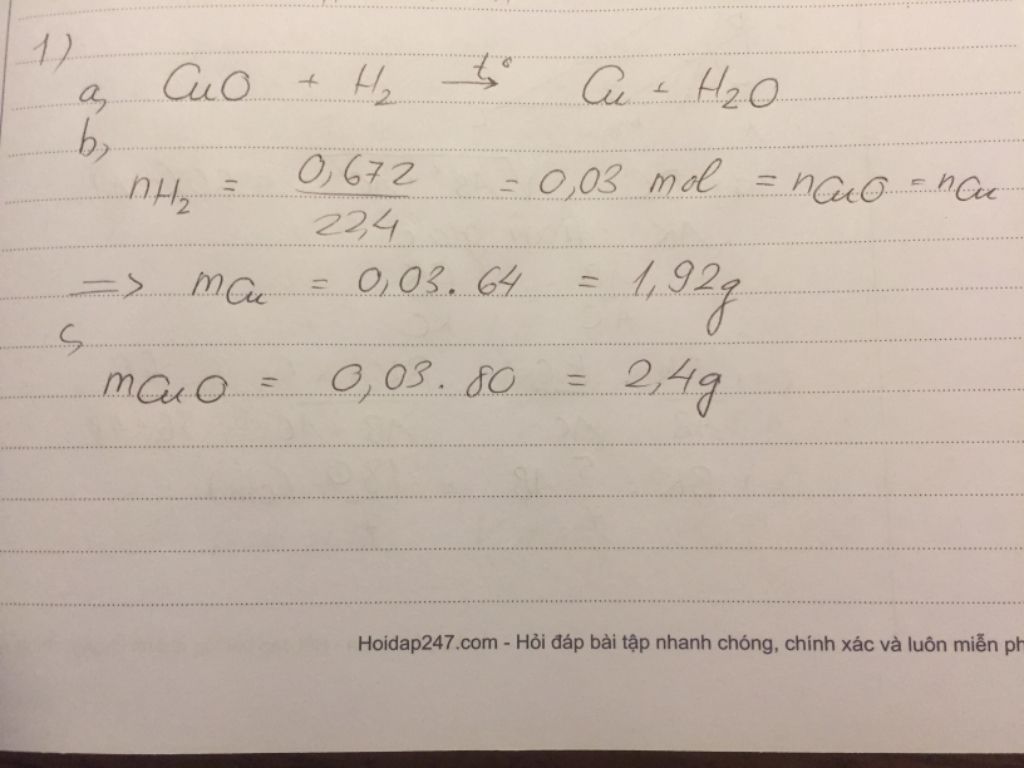 1)
a, CuO + H₂ →t° Cu + H₂O
b,
nH₂ = 0,672/22,4 = 0,03 mol = nCuO = nCu
=> mCu = 0,03. 64 = 1,92g
c,
mCuO = 0,03. 80 = 2,4g
Hoidap247.com - Hỏi đáp bài tập nhanh chóng, chính xác và luôn miễn ph